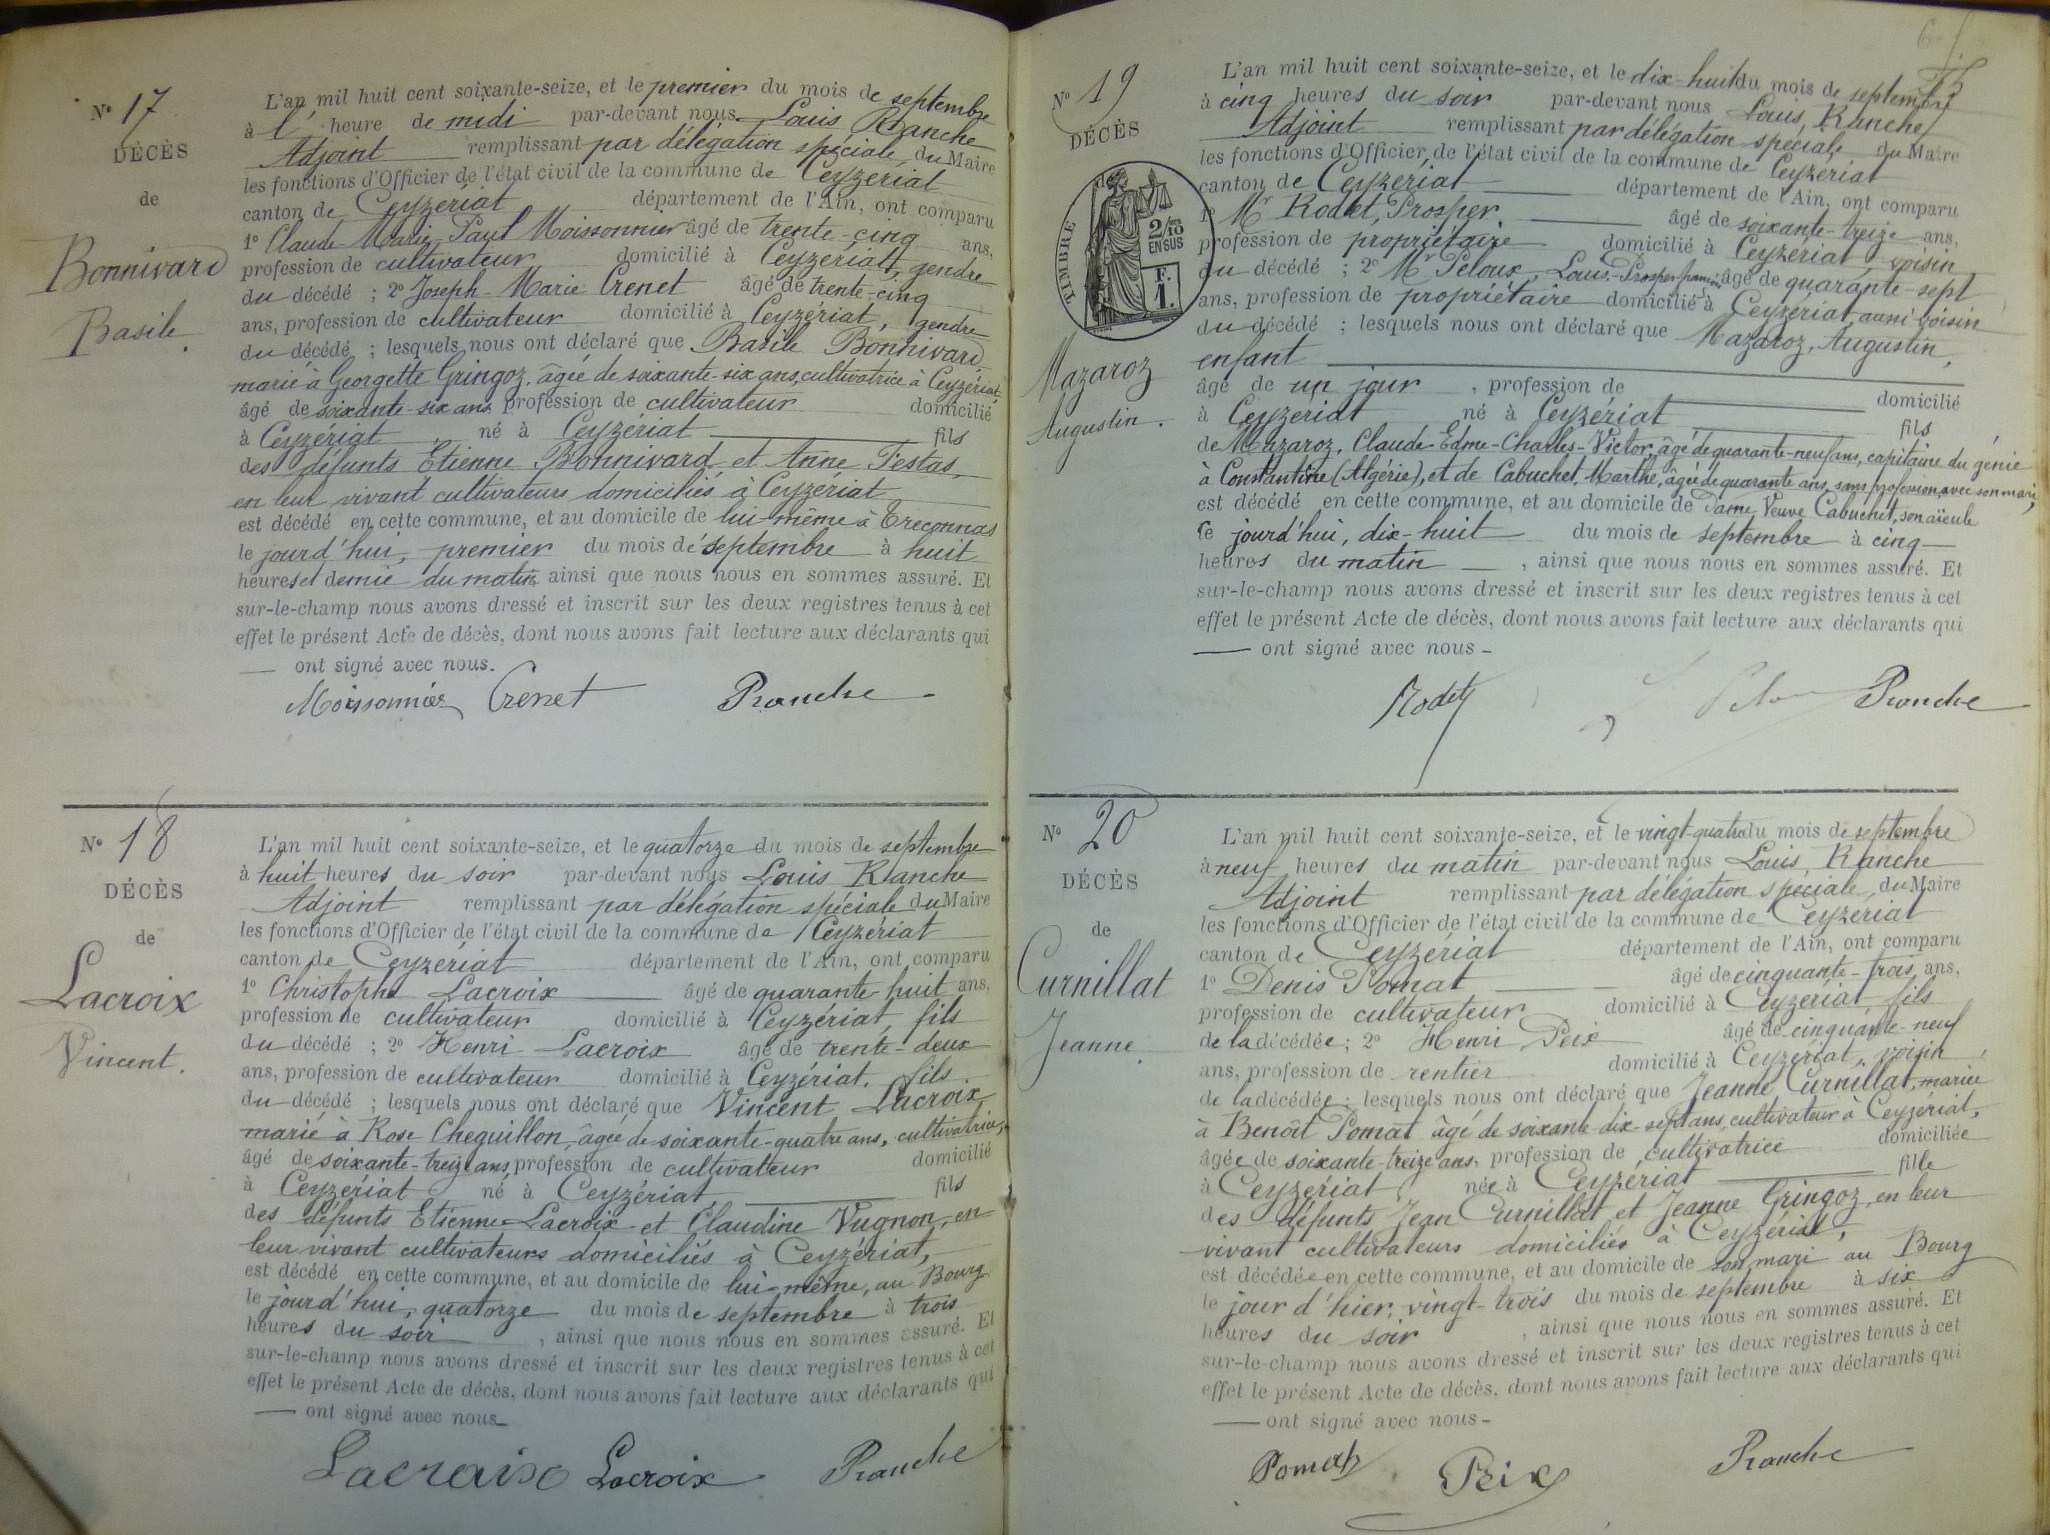 N° 17
DÉCÈS
de
Bonnivard
Basile.
L'an mil huit cent soixante-seize, et le premier du mois de septembre
à l' heure de midi par-devant nous Louis Ranche
Adjoint remplissant par délégation spéciale du Maire
les fonctions d'Officier de l'état civil de la commune de Ceyzériat
canton de Ceyzériat département de l'Ain, ont comparu
1° Claude-Marie-Paul Moissonnier âgé de trente-cinq ans,
profession de cultivateur domicilié à Ceyzériat, gendre
du décédé ; 2° Joseph-Marie Crenet âgé de trente-cinq
ans, profession de cultivateur domicilié à Ceyzériat, gendre
du décédé ; lesquels nous ont déclaré que Basile Bonnivard,
marié à Georgette Gringoz, âgée de soixante-six ans, cultivatrice à Ceyzériat,
âgé de soixante-six ans profession de cultivateur domicilié
à Ceyzériat, né à Ceyzériat fils
des défunts Etienne Bonnivard et Anne Festas,
en leur vivant cultivateurs domiciliés à Ceyzériat
est décédé en cette commune, et au domicile de lui-même à Treconnas
le jourd'hui, premier du mois de septembre à huit
heures et demie du matin, ainsi que nous nous en sommes assuré. Et
sur-le-champ nous avons dressé et inscrit sur les deux registres tenus à cet
effet le présent Acte de décès, dont nous avons fait lecture aux déclarants qui
— ont signé avec nous.
Moissonnier Crenet Ranche
N° 18
DÉCÈS
de
Lacroix
Vincent.
L'an mil huit cent soixante-seize, et le quatorze du mois de septembre
à huit heures du soir par-devant nous Louis Ranche
Adjoint remplissant par délégation spéciale du Maire
les fonctions d'Officier de l'état civil de la commune de Ceyzériat
canton de Ceyzériat département de l'Ain, ont comparu
1° Christophe Lacroix âgé de quarante-huit ans,
profession de cultivateur domicilié à Ceyzériat, fils
du décédé ; 2° Henri Lacroix âgé de trente-deux
ans, profession de cultivateur domicilié à Ceyzériat, fils
du décédé ; lesquels nous ont déclaré que Vincent Lacroix,
marié à Rose Chequillon, âgée de soixante-quatre ans, cultivatrice,
âgé de soixante-treize ans, profession de cultivateur domicilié
à Ceyzériat né à Ceyzériat fils
des défunts Etienne Lacroix et Claudine Vugnon, en
leur vivant cultivateurs domiciliés à Ceyzériat,
est décédé en cette commune, et au domicile de lui-même, au Bourg
le jourd'hui, quatorze du mois de septembre à trois
heures du soir, ainsi que nous nous en sommes assuré. Et
sur-le-champ nous avons dressé et inscrit sur les deux registres tenus à cet
effet le présent Acte de décès, dont nous avons fait lecture aux déclarants qui
— ont signé avec nous
Lacroix Lacroix Ranche
N° 19
DÉCÈS
de
TIMBRE
2/10 EN SUS
F. 1.
Mazaroz
Augustin.
L'an mil huit cent soixante-seize, et le dix-huit du mois de septembre
à cinq heures du soir par-devant nous Louis Ranche
Adjoint remplissant par délégation spéciale du Maire
les fonctions d'Officier de l'état civil de la commune de Ceyzériat
canton de Ceyzériat département de l'Ain, ont comparu
1° Mr Rodet, Prosper, âgé de soixante-treize ans,
profession de propriétaire domicilié à Ceyzériat, voisin
du décédé ; 2° Mr Peloux, Louis-Prosper- âgé de quarante-sept
ans, profession de propriétaire domicilié à Ceyzériat, aussi voisin
du décédé ; lesquels nous ont déclaré que Mazaroz, Augustin,
enfant
âgé de un jour, profession de domicilié
à Ceyzériat né à Ceyzériat fils
de Mazaroz, Claude-Edme-Charles-Victor, âgé de quarante-neuf ans, capitaine du génie
à Constantine (Algérie), et de Cabuchet, Marthe, âgée de quarante ans, sans profession, avec son mari,
est décédé en cette commune, et au domicile de Dame Veuve Cabuchet, son aïeule
le jourd'hui, dix-huit du mois de septembre à cinq
heures du matin, ainsi que nous nous en sommes assuré. Et
sur-le-champ nous avons dressé et inscrit sur les deux registres tenus à cet
effet le présent Acte de décès, dont nous avons fait lecture aux déclarants qui
— ont signé avec nous
Rodet Ranche
N° 20
DÉCÈS
de
Curnillat
Jeanne.
L'an mil huit cent soixante-seize, et le vingt-quatre du mois de septembre
à neuf heures du matin par-devant nous Louis, Ranche
Adjoint remplissant par délégation spéciale, du Maire
les fonctions d'Officier de l'état civil de la commune de Ceyzériat
canton de Ceyzériat département de l'Ain, ont comparu
1° Denis Pomat âgé de cinquante-trois ans,
profession de cultivateur domicilié à Ceyzériat, fils
de la décédée ; 2° Henri Peix âgé de cinquante-neuf
ans, profession de rentier domicilié à Ceyzériat, voisin,
de la décédée ; lesquels nous ont déclaré que Jeanne Curnillat, mariée
à Benoît Pomat âgé de soixante-dix-sept ans, cultivateur à Ceyzériat,
âgée de soixante-treize ans, profession de cultivatrice domiciliée
à Ceyzériat née à Ceyzériat fille
des défunts Jean Curnillat et Jeanne Gringoz, en leur
vivant cultivateurs domiciliés à Ceyzériat,
est décédée en cette commune, et au domicile de son mari au Bourg
le jour d'hier, vingt-trois du mois de septembre à six
heures du soir, ainsi que nous nous en sommes assuré. Et
sur-le-champ nous avons dressé et inscrit sur les deux registres tenus à cet
effet le présent Acte de décès, dont nous avons fait lecture aux déclarants qui
— ont signé avec nous
Pomat Peix Ranche